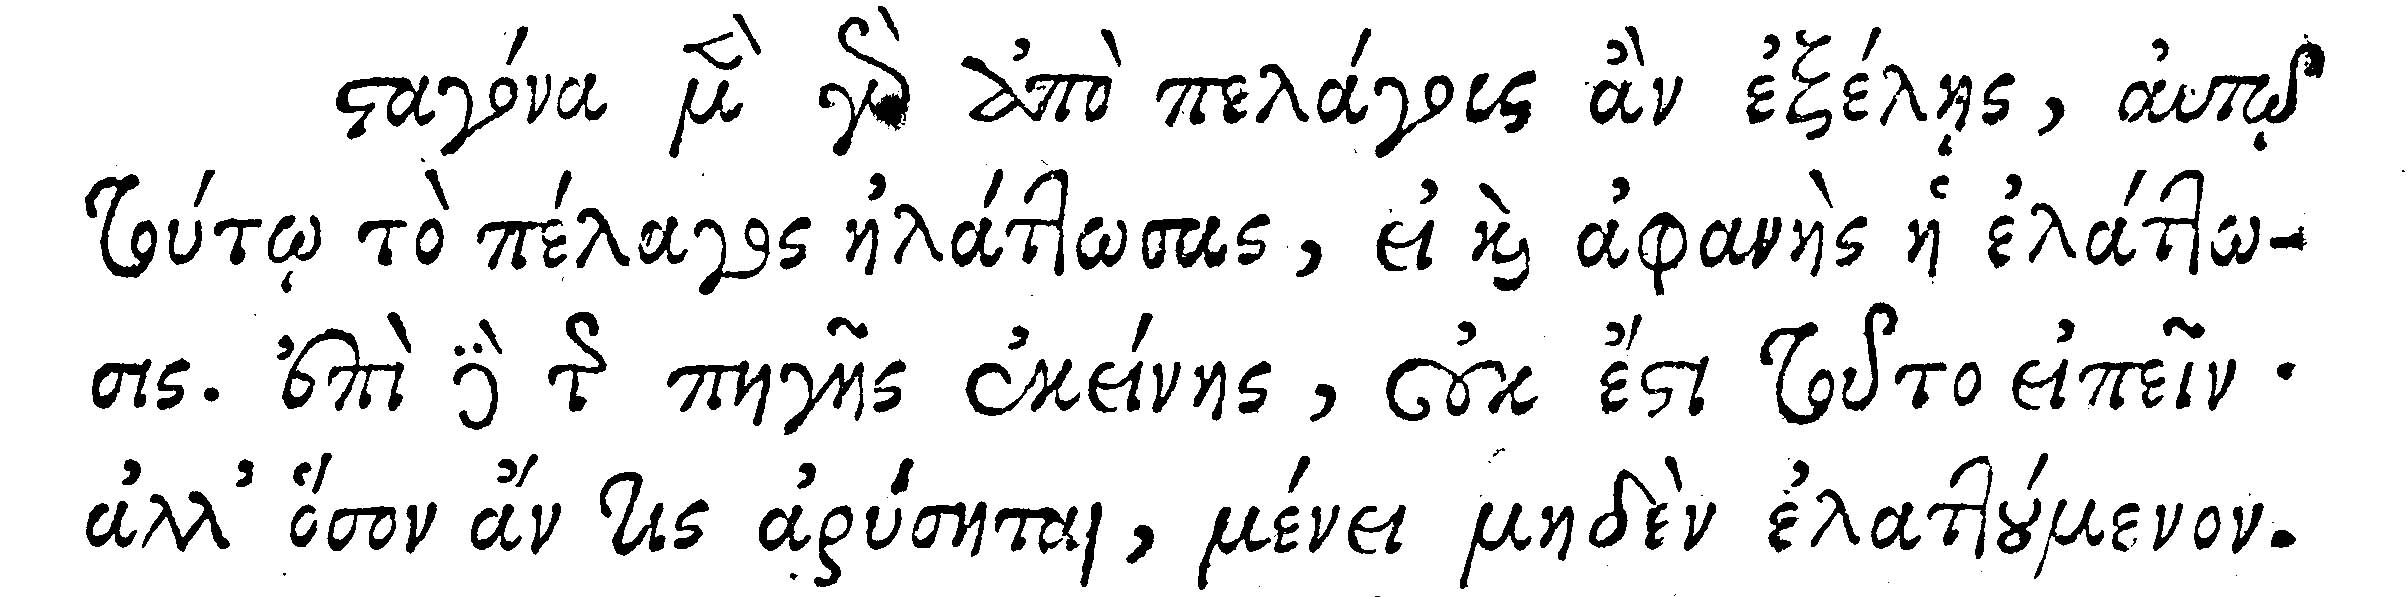 σταγόνα μὲν γὰρ ἀπὸ πελάγους ἂν ἐξέλῃς, ἀυτῷ
τούτῳ τὸ πέλαγος ἠλάττωσας, εἰ καὶ ἀφανὴς ἡ ἐλάττω-
σις. ἐπὶ δὲ τῆς πηγῆς ἐκείνης, οὐκ ἔστι τοῦτο εἰπεῖν·
ἀλλ’ ὅσον ἄν τις ἀρύσηται, μένει μηδὲν ἐλαττούμενον.